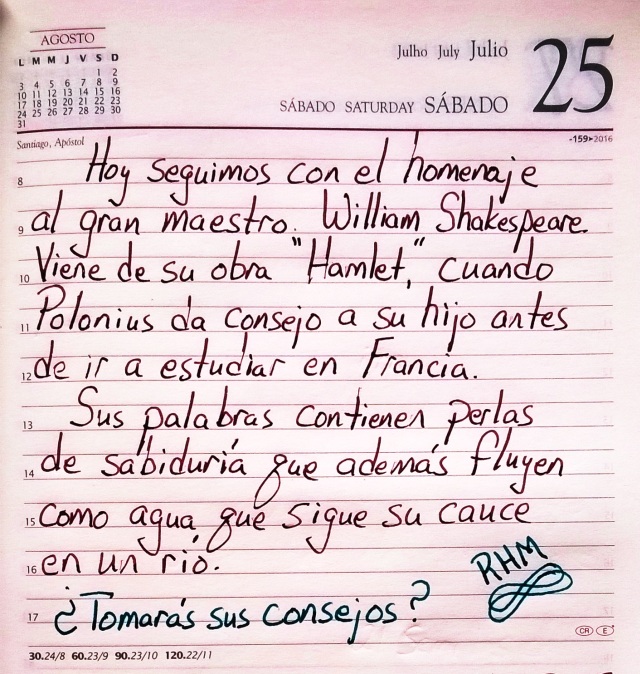 AGOSTO
L M M J V S D
1 2
3 4 5 6 7 8 9
10 11 12 13 14 15 16
17 18 19 20 21 22 23
24 25 26 27 28 29 30
31
Julho July Julio
25
SÁBADO SATURDAY SÁBADO
Santiago, Apóstol
-159>2016
8 Hoy seguimos con el homenaje
9 al gran maestro. William Shakespeare.
10 Viene de su obra "Hamlet," cuando
11 Polonius da consejo a su hijo antes
12 de ir a estudiar en Francia.
13 Sus palabras contienen perlas
14 de sabiduriá que además fluyen
15 como agua que sigue su cauce
16 en un rió.
RHM
17 ¿Tomarás sus consejos?
CR E
30.24/8 60.23/9 90.23/10 120.22/11